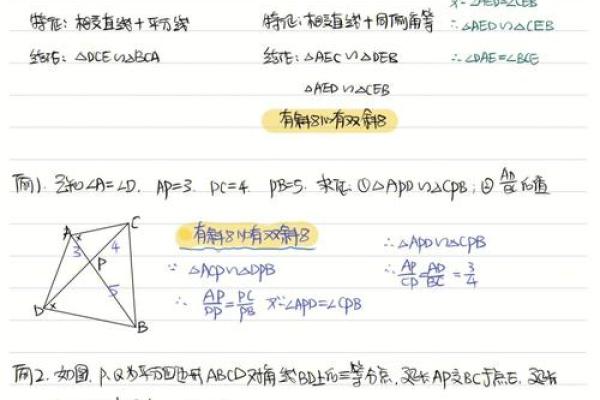 ∵∠AED=∠CEB
特征: 相交直线+平行线
特征: 相交直线+同侧角等
∴△AED∽△CEB
结论: △DCE∽△BCA
结论: △AEC∽△DEB
∴∠DAE=∠BCE
△AED∽△CEB
有斜8必有双斜8
例1. 已知∠A=∠D. AP=3. PC=4 PB=5. 求证: ①△APD∽△CPB; ② AD/BC的值
A C 3 4 P 5 D B
有斜8必有双斜8
∵ △ACP∽△DPB
∴ AP/DP = PC/PB 又∵∠APD=∠CPB
∴△APD∽△CPB
∴ AP/CP = AD/BC = 3/4
例2. 如图, P、Q为平行四边形ABCD对角线BD上的三等分点, 延长AP交BC于点E, 延长